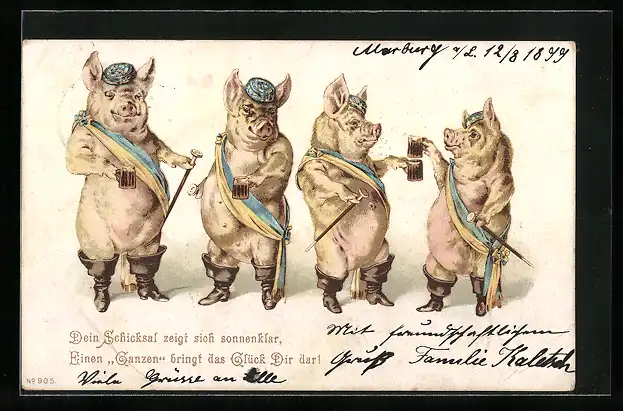 Marburg a/L. 12/8 1899
Dein Schicksal zeigt sich sonnenklar,
Einen „Ganzen“ bringt das Glück Dir dar!
Mit freundschaftlichem
Gruß Familie Kaletsch
No 905.
Viele Grüsse an Alle